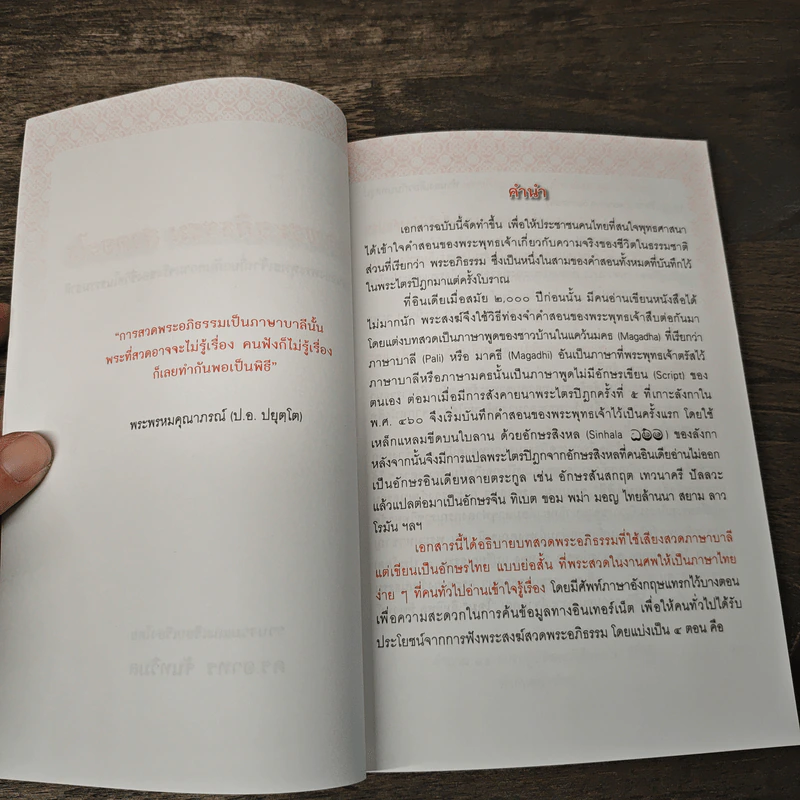 "การสวดพระอภิธรรมเป็นภาษาบาลีนั้น
พระที่สวดอาจจะไม่รู้เรื่อง คนฟังก็ไม่รู้เรื่อง
ก็เลยทำกันพอเป็นพิธี"
พระพรหมคุณาภรณ์ (ป.อ. ปยุตฺโต)
คำนำ
เอกสารฉบับนี้จัดทำขึ้น เพื่อให้ประชาชนคนไทยที่สนใจพุทธศาสนา
ได้เข้าใจคำสอนของพระพุทธเจ้าเกี่ยวกับความจริงของชีวิตในธรรมชาติ
ส่วนที่เรียกว่า พระอภิธรรม ซึ่งเป็นหนึ่งในสามของคำสอนทั้งหมดที่บันทึกไว้
ในพระไตรปิฎกมาแต่ครั้งโบราณ
ที่อินเดียเมื่อสมัย ๒,๐๐๐ ปีก่อนนั้น มีคนอ่านเขียนหนังสือได้
ไม่มากนัก พระสงฆ์จึงใช้วิธีท่องจำคำสอนของพระพุทธเจ้าสืบต่อกันมา
โดยแต่งบทสวดเป็นภาษาพูดของชาวบ้านในแคว้นมคธ (Magadha) ที่เรียกว่า
ภาษาบาลี (Pali) หรือ มาคธี (Magadhi) อันเป็นภาษาที่พระพุทธเจ้าตรัสไว้
ภาษาบาลีหรือภาษามคธนั้นเป็นภาษาพูดไม่มีอักษรเขียน (Script) ของ
ตนเอง ต่อมาเมื่อมีการสังคายนาพระไตรปิฎกครั้งที่ ๕ ที่เกาะลังกาใน
พ.ศ. ๔๖๐ จึงเริ่มบันทึกคำสอนของพระพุทธเจ้าไว้เป็นครั้งแรก โดยใช้
เหล็กแหลมขีดบนใบลาน ด้วยอักษรสิงหล (Sinhala ) ของลังกา
หลังจากนั้นจึงมีการแปลพระไตรปิฎกจากอักษรสิงหลที่คนอินเดียอ่านไม่ออก
เป็นอักษรอินเดียหลายตระกูล เช่น อักษรสันสกฤต เทวนาครี ปัลลวะ
แล้วแปลต่อมาเป็นอักษรจีน ทิเบต ขอม พม่า มอญ ไทยล้านนา สยาม ลาว
โรมัน ฯลฯ
เอกสารนี้ได้อธิบายบทสวดพระอภิธรรมที่ใช้เสียงสวดภาษาบาลี
แต่เขียนเป็นอักษรไทย แบบย่อสั้น ที่พระสวดในงานศพให้เป็นภาษาไทย
ง่าย ๆ ที่คนทั่วไปอ่านเข้าใจรู้เรื่อง โดยมีศัพท์ภาษาอังกฤษแทรกไว้บางตอน
เพื่อความสะดวกในการค้นข้อมูลทางอินเทอร์เน็ต เพื่อให้คนทั่วไปได้รับ
ประโยชน์จากการฟังพระสงฆ์สวดพระอภิธรรม โดยแบ่งเป็น ๔ ตอน คือ